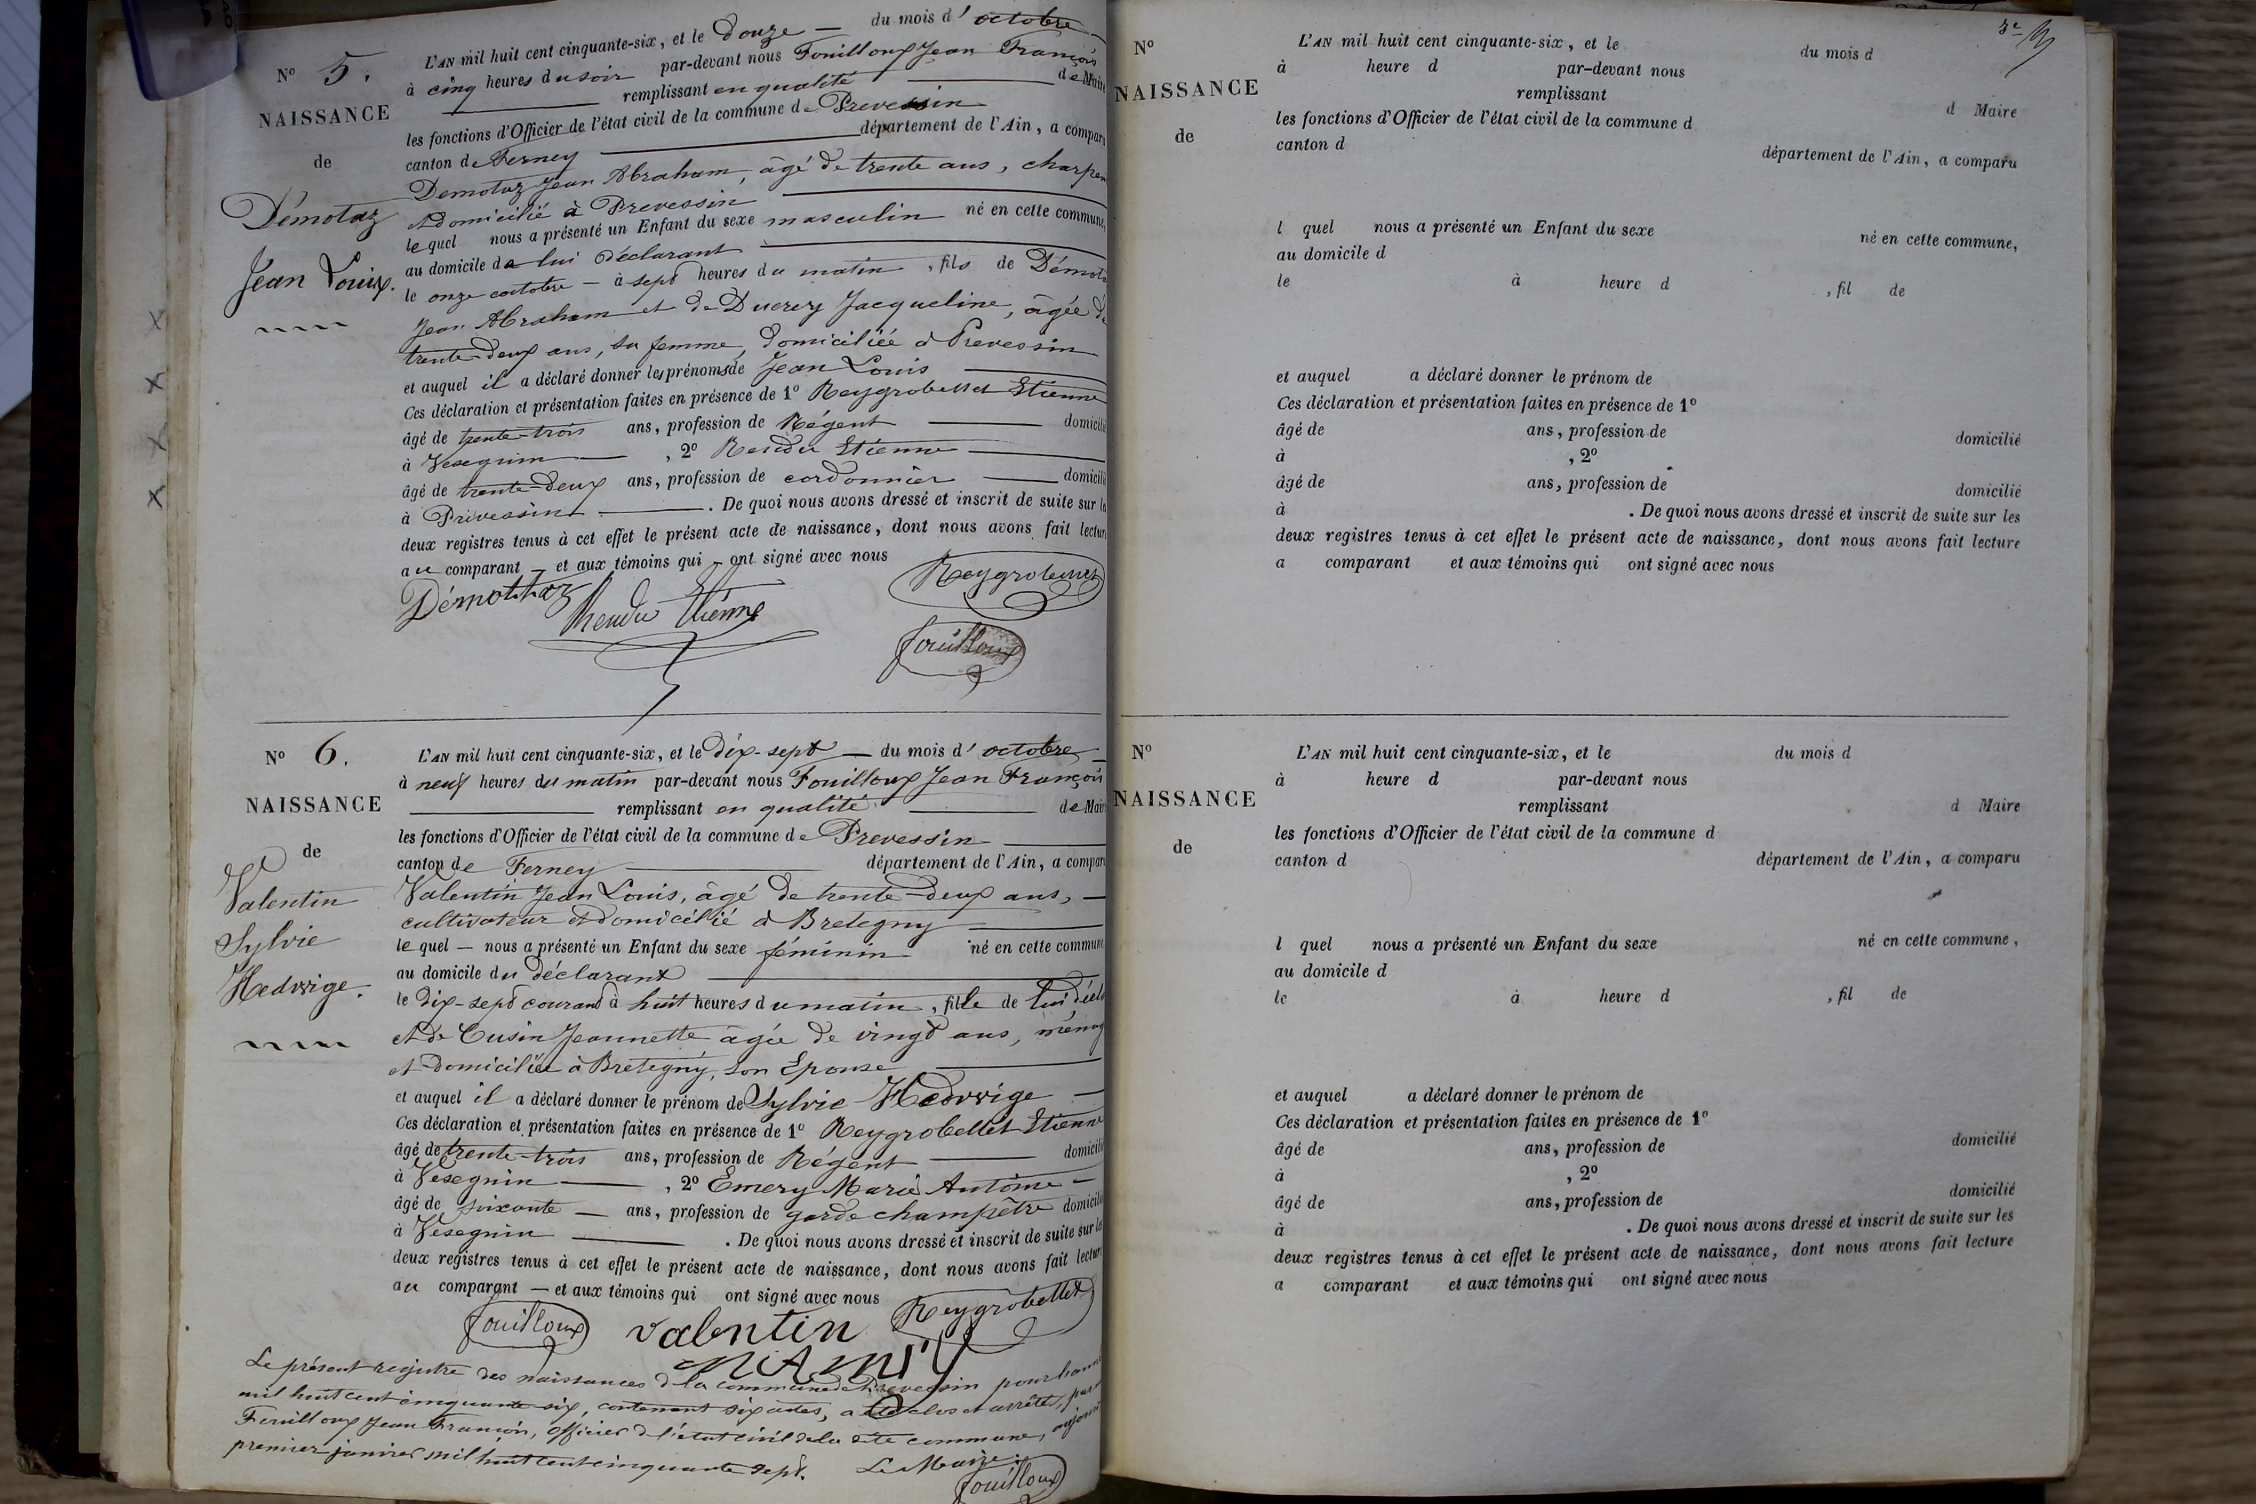 N° 5.
NAISSANCE
de
Démotaz
Jean Louis.
L'AN mil huit cent cinquante-six, et le Douze — du mois d' octobre
à cinq heures du soir par-devant nous Fouilloux Jean François
remplissant en qualité de Maire
les fonctions d'Officier de l'état civil de la commune de Prevessin
canton de Ferney département de l'Ain, a comparu
Demotaz Jean Abraham, âgé de trente ans, charpen
et domicilié à Prevessin
lequel nous a présenté un Enfant du sexe masculin né en cette commune,
au domicile de lui déclarant
le onze octobre — à sept heures du matin, fils de Démota
Jean Abraham et de Ducrey Jacqueline, âgée de
trente-deux ans, sa femme, domiciliée à Prevessin
et auquel il a déclaré donner les prénoms de Jean Louis
Ces déclaration et présentation faites en présence de 1° Reygrobellet Etienne
âgé de trente-trois ans, profession de Régent domicilié
à Vesegnin — , 2° Rendu Etienne
âgé de trente-deux ans, profession de cordonnier domicilié
à Prévessin . De quoi nous avons dressé et inscrit de suite sur les
deux registres tenus à cet effet le présent acte de naissance, dont nous avons fait lecture
au comparant — et aux témoins qui — ont signé avec nous
Démottaz Rendu Etienne Reygrobellet
Fouilloux
N° 6.
NAISSANCE
de
Valentin
Sylvie
Hedwige.
L'AN mil huit cent cinquante-six, et le dix-sept — du mois d' octobre
à neuf heures du matin par-devant nous Fouilloux Jean François
remplissant en qualité de Maire
les fonctions d'Officier de l'état civil de la commune de Prevessin
canton de Ferney département de l'Ain, a comparu
Valentin Jean Louis, âgé de trente-deux ans, —
cultivateur et domicilié à Bretegny
lequel — nous a présenté un Enfant du sexe féminin né en cette commune
au domicile du déclarant
le dix-sept courant à huit heures du matin, fille de lui décla
et de Cusin Jeannette âgée de vingt ans, ménag
et domiciliée à Bretegny, son Epouse
et auquel il a déclaré donner le prénom de Sylvie Hedwige —
Ces déclaration et présentation faites en présence de 1° Reygrobellet Etienne
âgé de trente-trois ans, profession de Régent domicilié
à Vesegnin — , 2° Emery Marie Antoine —
âgé de soixante — ans, profession de garde champêtre domicilié
à Vesegnin . De quoi nous avons dressé et inscrit de suite sur les
deux registres tenus à cet effet le présent acte de naissance, dont nous avons fait lecture
au comparant — et aux témoins qui ont signé avec nous
Fouilloux valentin Reygrobellet
Le présent registre des naissances de la commune de Prevessin pour l'année
mil huit cent cinquante-six, contenant six actes, a été clos et arrêté, par
Fouilloux Jean François, officier de l'état civil de la dite commune, aujourd
premier janvier mil huit cent cinquante sept. Le Maire.
Fouilloux
N°
NAISSANCE
de
L'AN mil huit cent cinquante-six, et le du mois d
à heure d par-devant nous
remplissant d Maire
les fonctions d'Officier de l'état civil de la commune d
canton d département de l'Ain, a comparu
l quel nous a présenté un Enfant du sexe né en cette commune,
au domicile d
le à heure d , fil de
et auquel a déclaré donner le prénom de
Ces déclaration et présentation faites en présence de 1°
âgé de ans, profession de domicilié
à , 2°
âgé de ans, profession de domicilié
à . De quoi nous avons dressé et inscrit de suite sur les
deux registres tenus à cet effet le présent acte de naissance, dont nous avons fait lecture
a comparant et aux témoins qui ont signé avec nous
N°
NAISSANCE
de
L'AN mil huit cent cinquante-six, et le du mois d
à heure d par-devant nous
remplissant d Maire
les fonctions d'Officier de l'état civil de la commune d
canton d département de l'Ain, a comparu
l quel nous a présenté un Enfant du sexe né en cette commune,
au domicile d
le à heure d , fil de
et auquel a déclaré donner le prénom de
Ces déclaration et présentation faites en présence de 1°
âgé de ans, profession de domicilié
à , 2°
âgé de ans, profession de domicilié
à . De quoi nous avons dressé et inscrit de suite sur les
deux registres tenus à cet effet le présent acte de naissance, dont nous avons fait lecture
a comparant et aux témoins qui ont signé avec nous